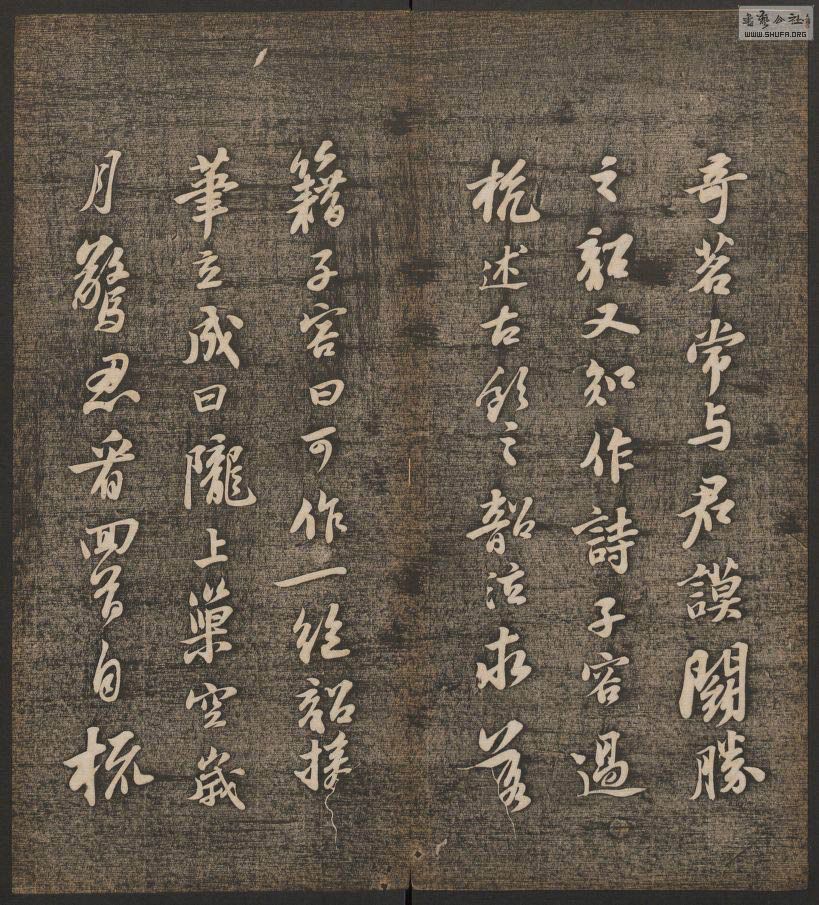 奇茗常与君謨鬪勝
之韶又知作詩子容過
杭述古飲之韶泣求落
籍子容曰可作一絶韶援
筆立成曰隴上巢空歳
月驚忍看囬首自梳
書藝公社
WWW.SHUFA.ORG